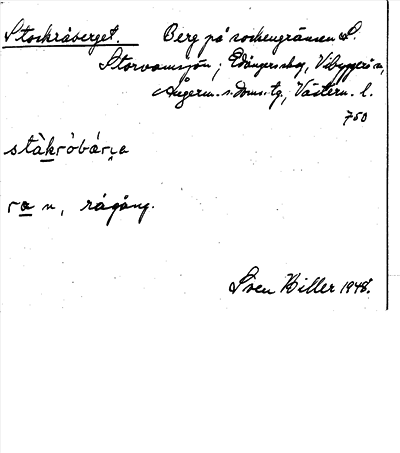 Stockråberget. Berg på sockengränsen S.
Storvamsjön; Edångersskog, Vibyggerå sn,
Ångerm. s. doms. tg, Västern. l.
750
stàkròbárjɛ
ra n, rågång.
Sven Hiller 1948.